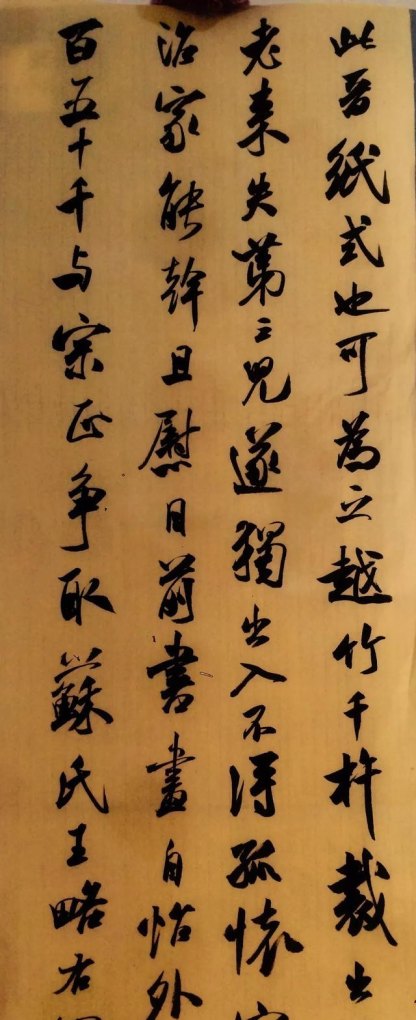 此晋紙式也可為之越竹千杵裁出
老来失第三兒遂獨出入不得孤懷
治家能幹且慰目前書畫自怡外
百五十千与宗正争取蘇氏王略右